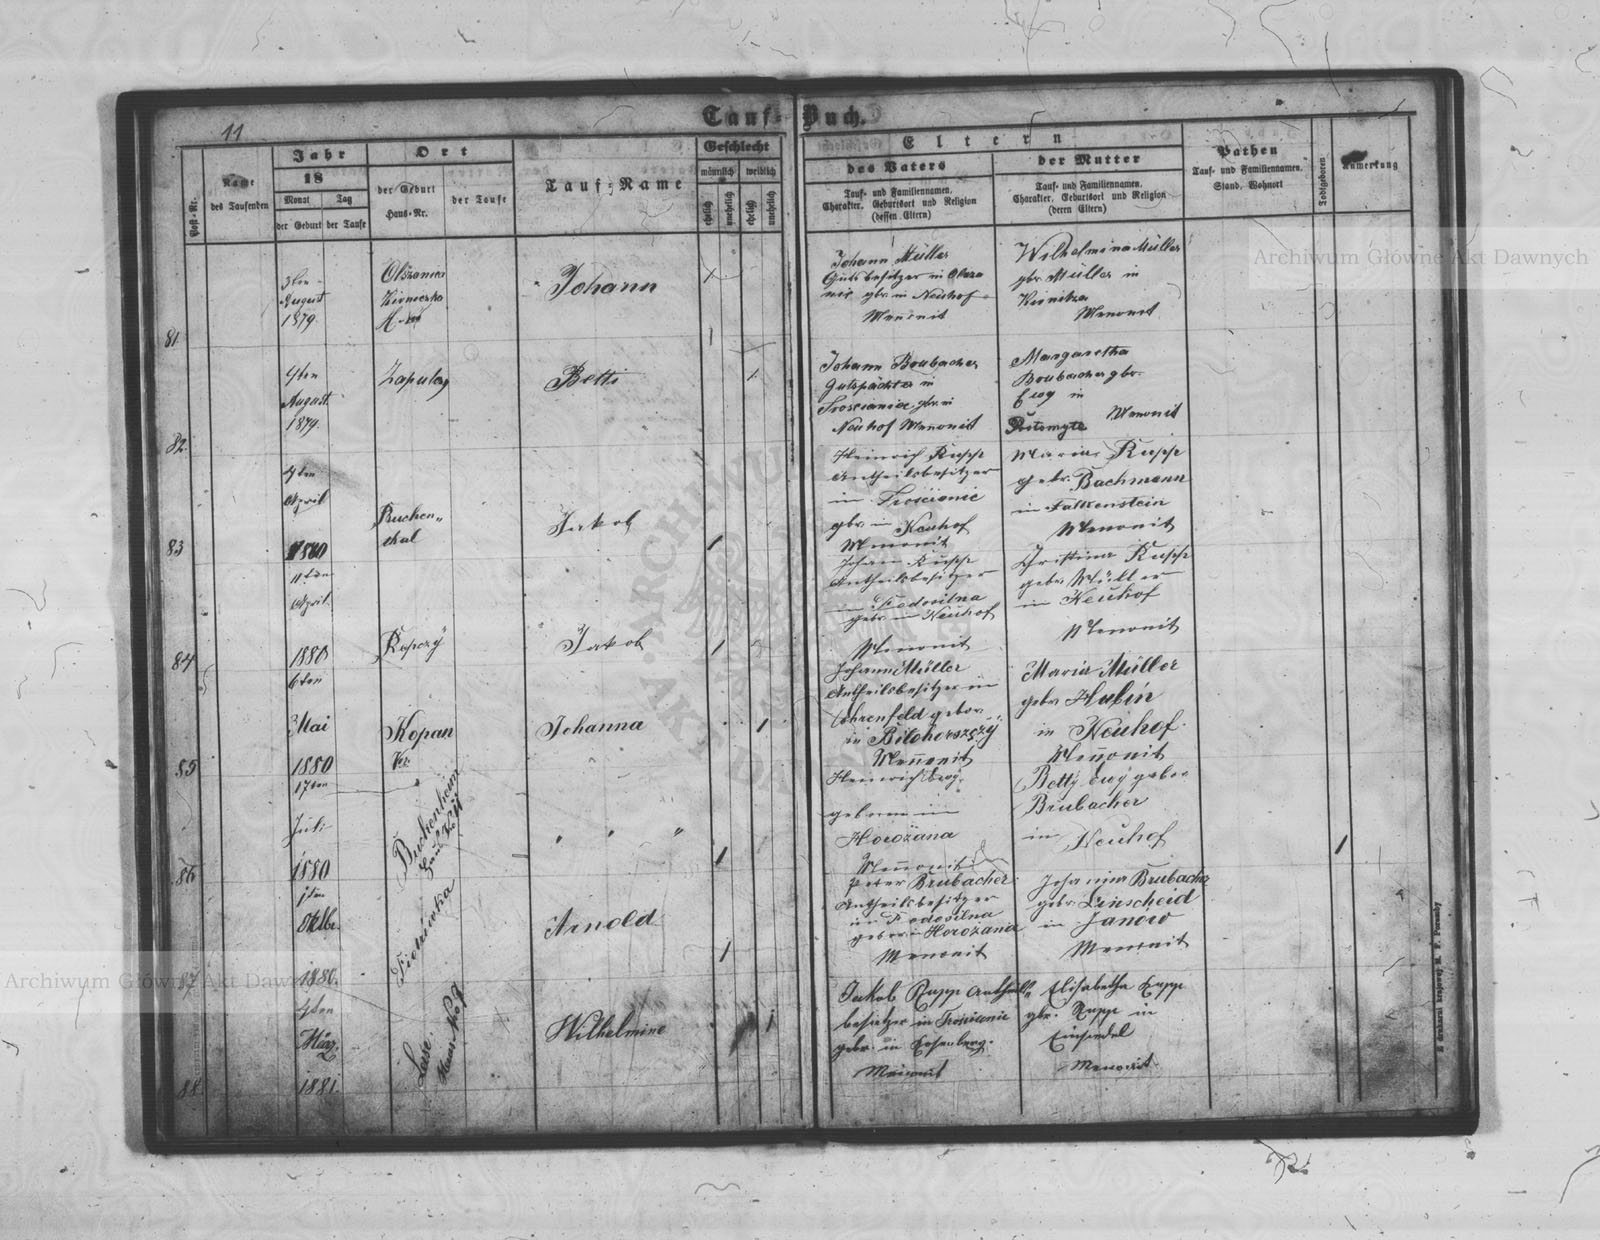 11
Tauf-Buch.
Post-Nr.
Name
des Taufenden
Jahr
18
Monat
Tag
der Geburt
der Taufe
Ort
der Geburt
Haus-Nr.
der Taufe
Tauf-Name
Geschlecht
männlich
weiblich
ehelich
unehelich
ehelich
unehelich
Eltern
des Vaters
Tauf- und Familiennamen.
Charakter. Geburtsort und Religion
(dessen Eltern)
der Mutter
Tauf- und Familiennamen.
Charakter, Geburtsort und Religion
(deren Eltern)
Pathen
Tauf- und Familiennamen.
Stand, Wohnort
Todtgeboren
Anmerkung
81
3ten
August
1879.
Johann
Johann Müller
Gutsbesitzer in
gbr. in Neuhof
Menonit
Wilhelmina Müller
gbr. Müller in
Menonit
82.
9ten
August
1879.
Betti
Johann Brubacher
Gutspächter in
gbr. in
Neuhof Menonit
Margaretha
Brubacher gbr.
Ewy in
Menonit
83
April
1880
Buchen"
thal
Jakob
Heinrich Rupp
Antheilsbesitzer
in Troscianie
gbr. in Neuhof
Menonit
Maria Rupp
gebr. Bachmann
in Falkenstein
Menonit
84
11ten
April
1880
Kopczÿ
Jakob
Johan Rupp
Antheilsbesitzer
in
gebr. in Neuhof
Menonit
Christina Rupp
gebr. Müller
in Neuhof
Menonit
85
6ten
Mai
1880
Kopan
Johanna
Johann Müller
Antheilsbesitzer in
Ehrenfeld gebor.
in
Menonit
Maria Müller
gebr. Hubin
in Neuhof
Menonit
86
17ten
Juli
1880
" " "
Heinrich Ewy.
geboren in
Horożana
Menonit
Betty Ewy gebor
Brubacher
in Neuhof
87
Oktbr.
1880.
Arnold
Peter Brubacher
Antheilsbesitzer
in
gebor. in Horożana
Menonit
Johanna Brubacher
gebr. Linscheid
in Janow
Menonit
88.
9ten
März.
1881.
Wilhelmine
Jakob Rupp Antheils"
besitzer in Troscianie
gebr. in Rosenberg.
Menonit
Elisabetha Rupp
gbr. Rupp in
Einsiedel
Menonit
Z drukarni krajowej M. F. Poremby
Archiwum Główne Akt Dawnych
Archiwum Główne Akt Dawnych